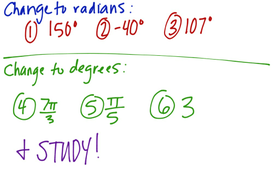 Change to radians:
① 150° ② -40° ③ 107°
Change to degrees:
④ 7π/3 ⑤ π/5 ⑥ 3
+ STUDY!